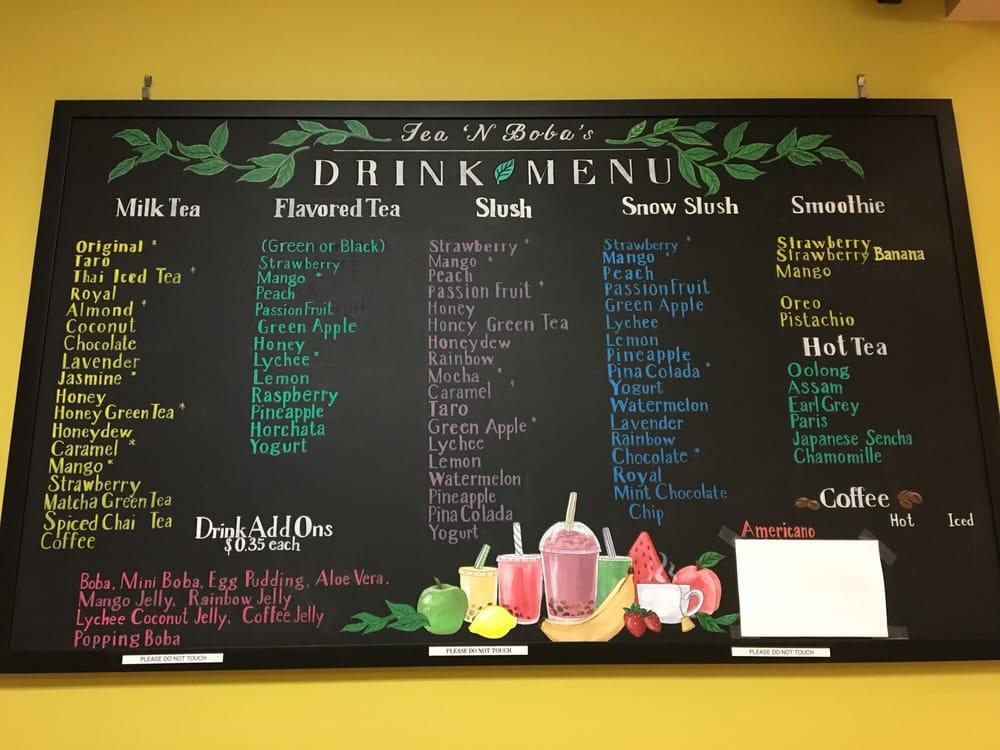 Tea 'N Boba's
DRINK MENU
Milk Tea
Original *
Taro
Thai Iced Tea *
Royal
Almond *
Coconut
Chocolate
Lavender
Jasmine *
Honey
Honey Green Tea *
Honeydew
Caramel *
Mango *
Strawberry
Matcha Green Tea
Spiced Chai Tea
Coffee
Flavored Tea
(Green or Black)
Strawberry
Mango *
Peach
Passion Fruit
Green Apple
Honey
Lychee *
Lemon
Raspberry
Pineapple
Horchata
Yogurt
Slush
Strawberry *
Mango *
Peach
Passion Fruit *
Honey
Honey Green Tea
Honeydew
Rainbow
Mocha *
Caramel *
Taro
Green Apple *
Lychee
Lemon
Watermelon
Pineapple
Pina Colada
Yogurt
Snow Slush
Strawberry *
Mango *
Peach
Passion Fruit
Green Apple
Lychee
Lemon
Pineapple
Pina Colada *
Yogurt
Watermelon
Lavender
Rainbow
Chocolate *
Royal
Mint Chocolate
Chip
Smoothie
Strawberry
Strawberry Banana
Mango
Oreo
Pistachio
Hot Tea
Oolong
Assam
Earl Grey
Paris
Japanese Sencha
Chamomille
Coffee
Hot Iced
Americano
Drink Add Ons
$0.35 each
Boba, Mini Boba, Egg Pudding, Aloe Vera,
Mango Jelly, Rainbow Jelly
Lychee Coconut Jelly, Coffee Jelly
Popping Boba
PLEASE DO NOT TOUCH
PLEASE DO NOT TOUCH
PLEASE DO NOT TOUCH